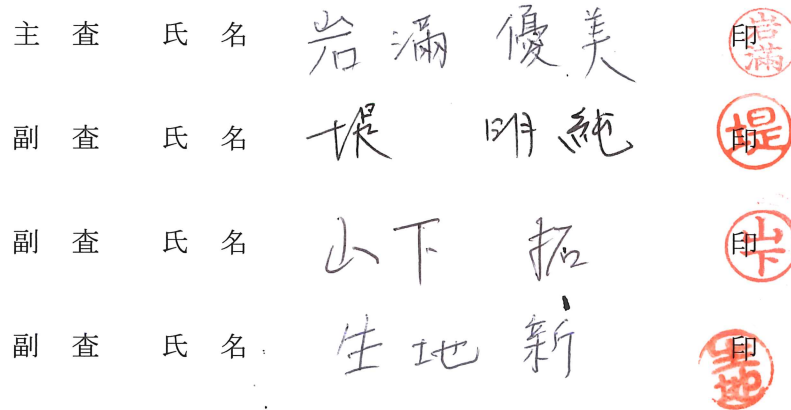 主査 氏名 岩満 優美 印 岩満
副査 氏名 堤 明純 印 堤
副査 氏名 山下 拓 印 山下
副査 氏名 生地 新 印 生地